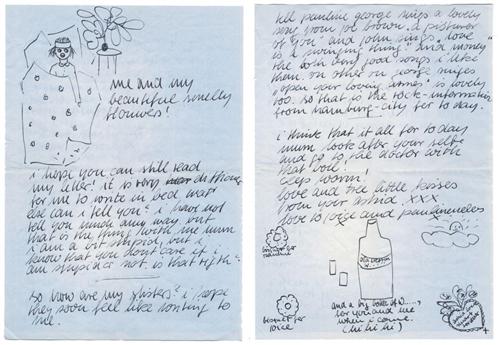 me and my
beautiful smelly
flouwers!
i hope you can still read
my letter! it is very
for me to write in bed. wat
else can i tell you? i have not
tell you much any way, but
that is the thing with me mum
i am a bit stupid, but i
know that you dont care if i
am stupid or not. is that rigth?
so how are my sisters? i hope
they soon feel like writing to
me.
tell pauline george sings a lovely
song from joe brown. a picturer
of you" and john sings "love
is a swinging thing" and "money"
the both very good songs i like
them. on other on george sings
"open your loving armes" is lovely
too. so that is the rock-information
from hamburg-city for to day.
i think that it all for to day
mum. look after your self
and go to the doctor with
that boil!
keep worm!
love and tree little kisses
from your astrid. xxx
love to joice and
bouquet for
pauline
bouquet for
joice
and a big bottle of
for you and me
when i come.
(hi hi hi)